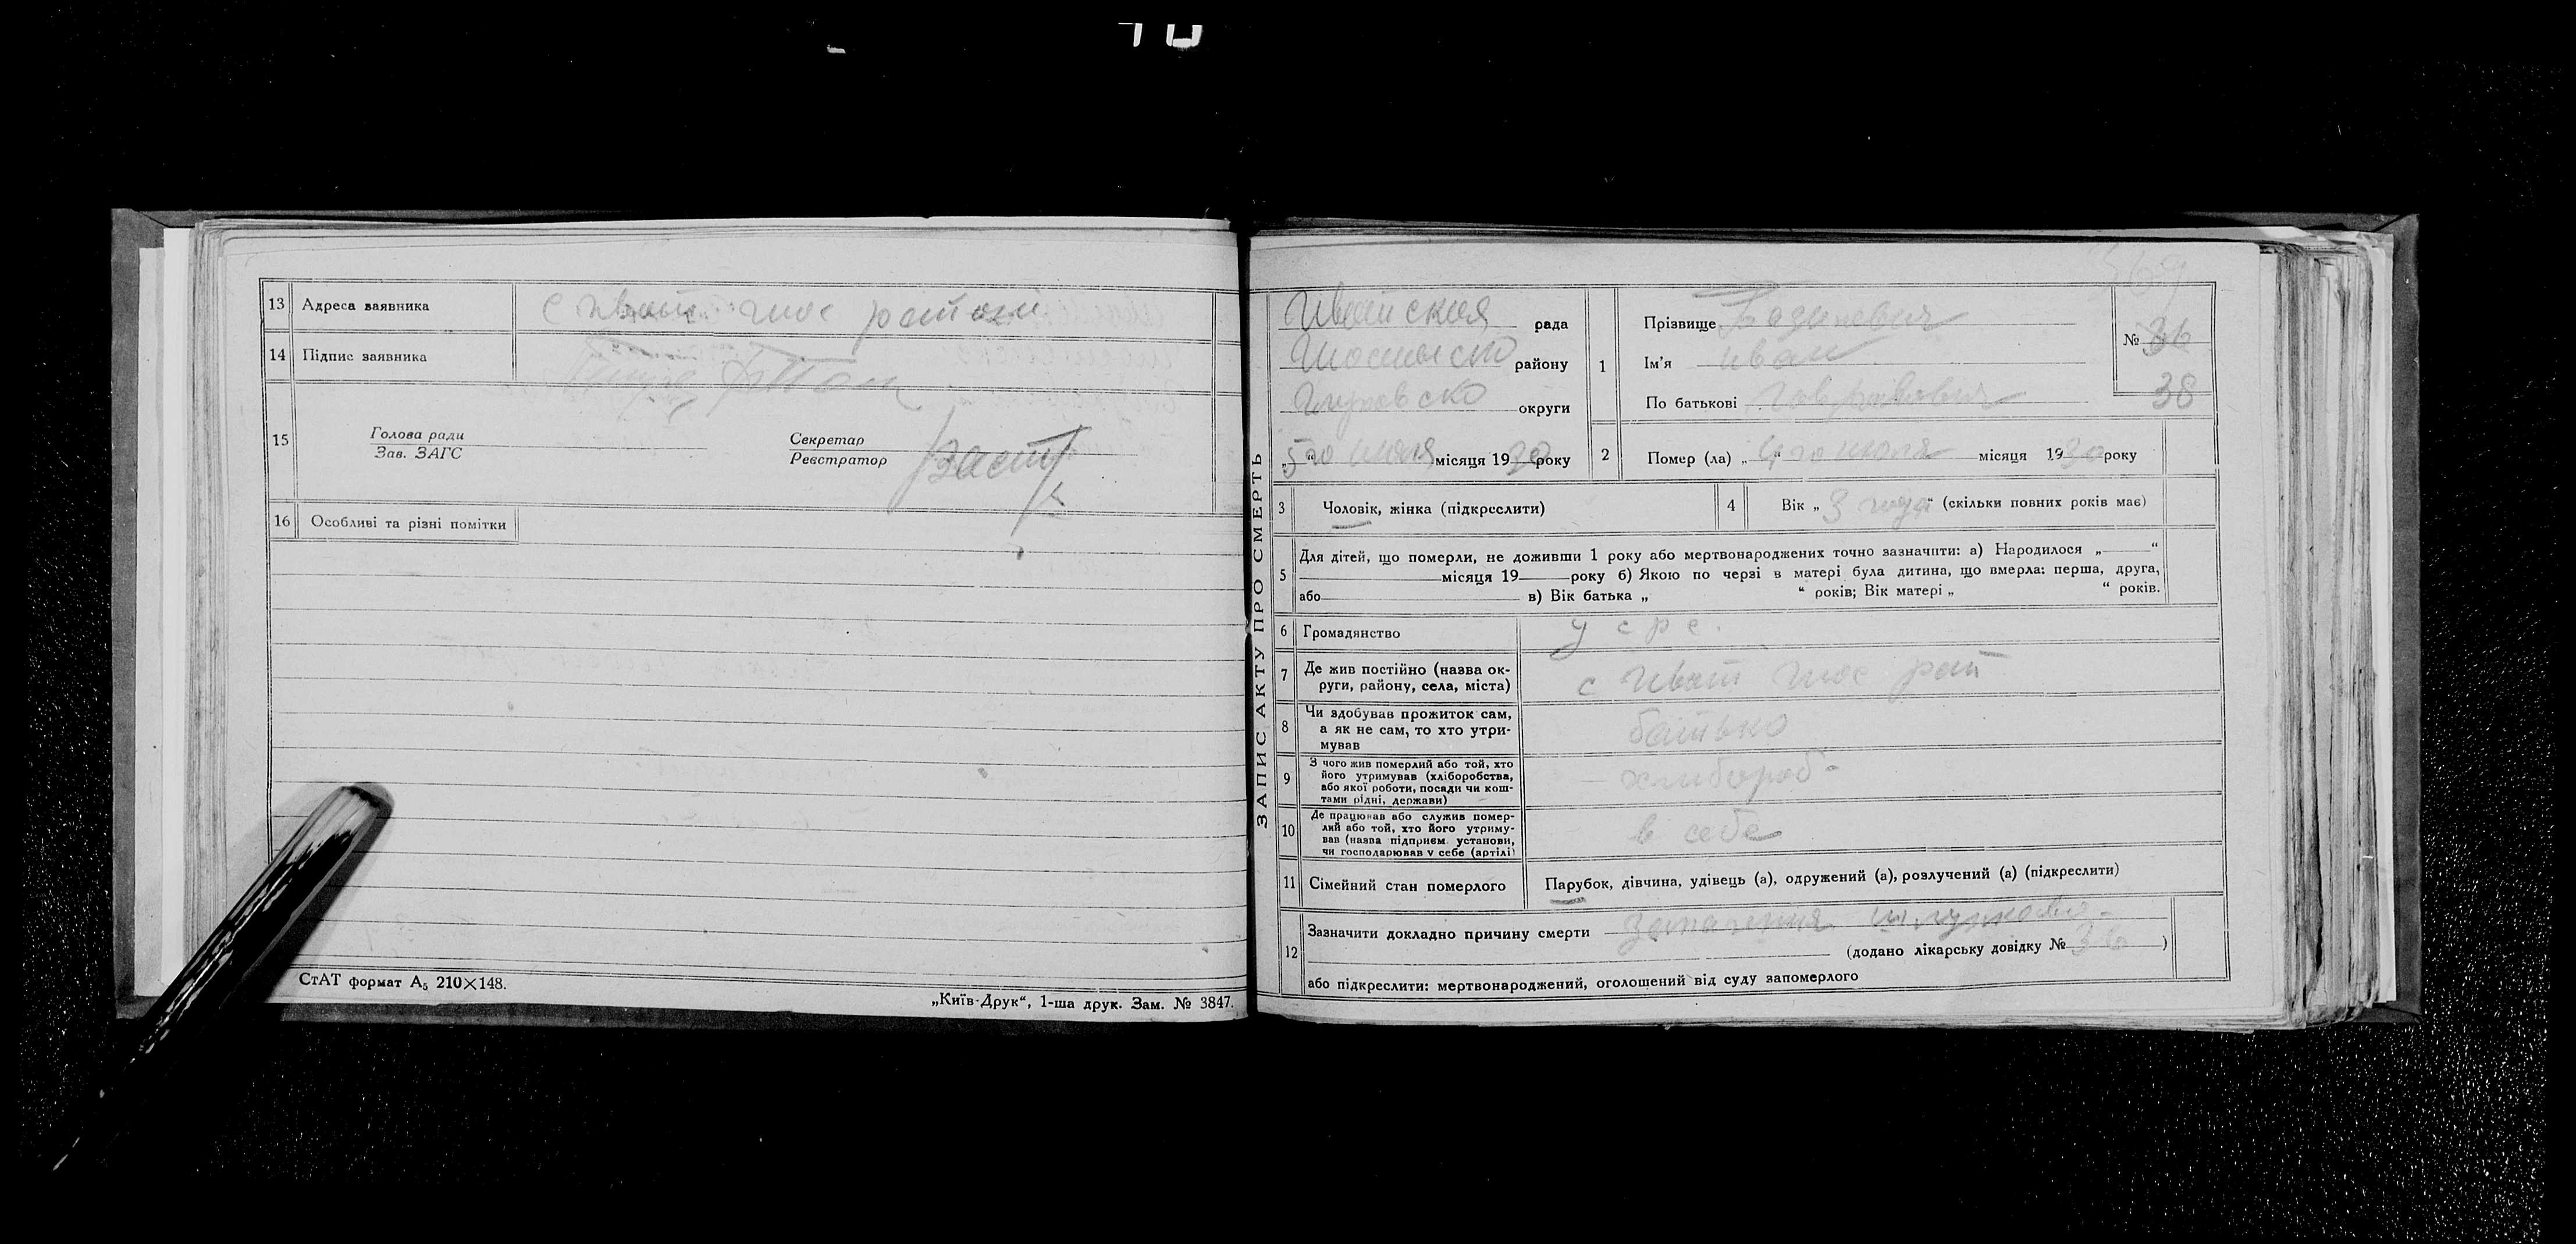 13 Адреса заявника с Ивот шос
14 Підпис заявника
15 Голова ради
Зав. ЗАГС
Секретар
Реєстратор
16 Особливі та різні помітки
СтАТ формат А₅ 210×148.
„Київ-Друк“, 1-ша друк. Зам. № 3847.
ЗАПИС АКТУ ПРО СМЕРТЬ
рада
району
округи
5го июля місяця 1930 року
1 Прізвище
Ім'я Иван
По батькові
№ 36
38
2 Помер (ла) „4го июля місяця 1930 року
3 Чоловік, жінка (підкреслити)
4 Вік „3 года“ (скільки повних років має)
5 Для дітей, що померли, не доживши 1 року або мертвонароджених точно зазначити: а) Народилося „ “
місяця 19 року б) Якою по черзі в матері була дитина, що вмерла: перша, друга,
або в) Вік батька „ “ років; Вік матері „ “ років.
6 Громадянство усрс.
7 Де жив постійно (назва ок-
руги, району, села, міста) с Ивот шос рай
8 Чи здобував прожиток сам,
а як не сам, то хто утри-
мував батько
9 З чого жив померлий або той, хто
його утримував (хліборобства,
або якої роботи, посади чи кош-
тами рідні, держави) хлибороб
10 Де працював або служив помер-
лий або той, хто його утриму-
вав (назва підприєм. установи,
чи господарював у себе (артілі) в себе
11 Сімейний стан померлого Парубок, дівчина, удівець (а), одружений (а), розлучений (а) (підкреслити)
12 Зазначити докладно причину смерти запалення
(додано лікарську довідку № 36 )
або підкреслити: мертвонароджений, оголошений від суду запомерлого